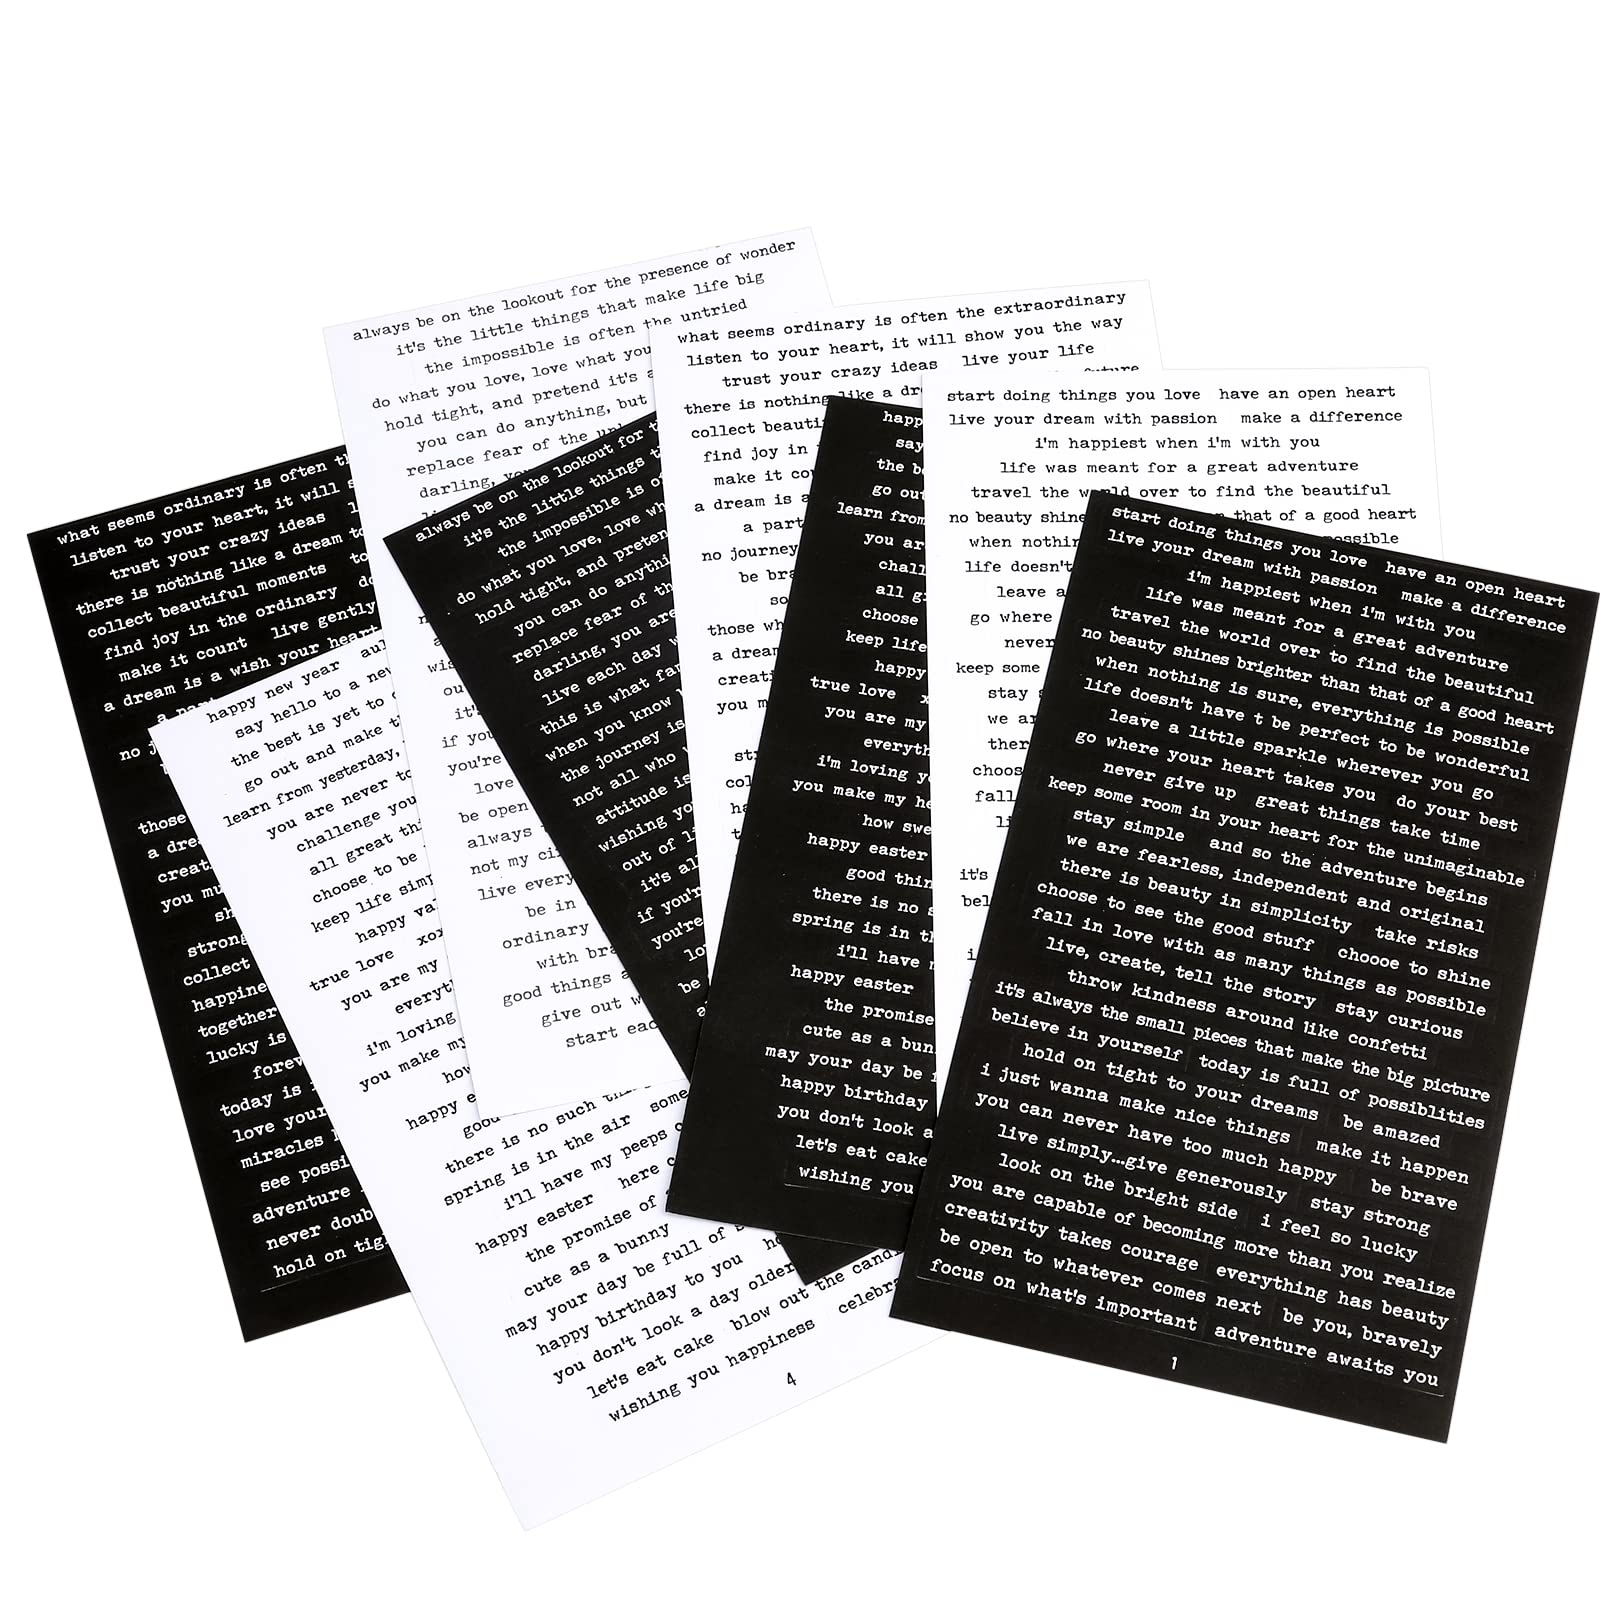 always be on the lookout for the presence of wonder
it's the little things that make life big
the impossible is often the untried
do what you love, love what you
hold tight, and pretend it's a
you can do anything, but
replace fear of the
darling,
wis
ou
it's
if you
you're
love
be open
always
not my
live every
be in
ordinary
with
good things
give out
start
what seems ordinary is often the extraordinary
listen to your heart, it will show you the way
trust your crazy ideas live your life
future
there is nothing like a
collect
find joy in
make it
a dream is a
a part
no journey
be
so
those
a dream
you
start doing things you love have an open heart
live your dream with passion make a difference
i'm happiest when i'm with you
life was meant for a great adventure
travel the world over to find the beautiful
no beauty shine that of a good heart
when
life doesn't
leave a
go where
never
keep some
stay
we
choos
fall
it's
bel
what seems ordinary is often
listen to your heart, it will
trust your crazy ideas
there is nothing like a dream
collect beautiful moments to
find joy in the ordinary do
make it count live gently
a dream is a wish your heart
no
those
a
you
strong
collect
together
lucky is
today is
love your
miracles
see
adventure
never
hold on
happy new year
say hello to a new
the best is yet to
go out and make
learn from yesterday,
you are never to
challenge you
all great
choose to be
keep life
happy
true love
you are my
i'm loving
you make my
how
happy
good
there is no such
spring is in the air
i'll have my peeps
happy easter here
the promise of
cute as a bunny
may your day be full of
happy birthday to you
you don't look a day older
let's eat cake blow out the
wishing you happiness
4
always be on the lookout for
it's the little things
the impossible is
do what you love, love
hold tight, and
you can do
replace fear of
darling, you are
live each day
this is what
when you know
the journey is
not all who
attitude is
wishing
out of
it's
if
you're
be
happ
say
the
go out
learn from
you
all
choose
keep life
happy
true love
you are my
i'm loving
you make my
how
happy easter
good
there is no
spring is in
i'll have
happy easter
the promise
cute as a
may your day be
happy birthday
you don't look a
let's eat cake
wishing you
start doing things you love have an open heart
live your dream with passion make a difference
i'm happiest when i'm with you
life was meant for a great adventure
travel the world over to find the beautiful
no beauty shines brighter than that of a good heart
when nothing is sure, everything is possible
life doesn't have t be perfect to be wonderful
leave a little sparkle wherever you go
go where your heart takes you do your best
never give up great things take time
keep some room in your heart for the unimaginable
stay simple and so the adventure begins
we are fearless, independent and original
there is beauty in simplicity take risks
choose to see the good stuff chooose to shine
fall in love with as many things as possible
live, create, tell the story stay curious
throw kindness around like confetti
it's always the small pieces that make the big picture
believe in yourself today is full of possiblities
hold on tight to your dreams be amazed
i just wanna make nice things make it happen
you can never have too much happy be brave
live simply...give generously stay strong
look on the bright side i feel so lucky
you are capable of becoming more than you realize
creativity takes courage everything has beauty
be open to whatever comes next be you, bravely
focus on what's important adventure awaits you
1